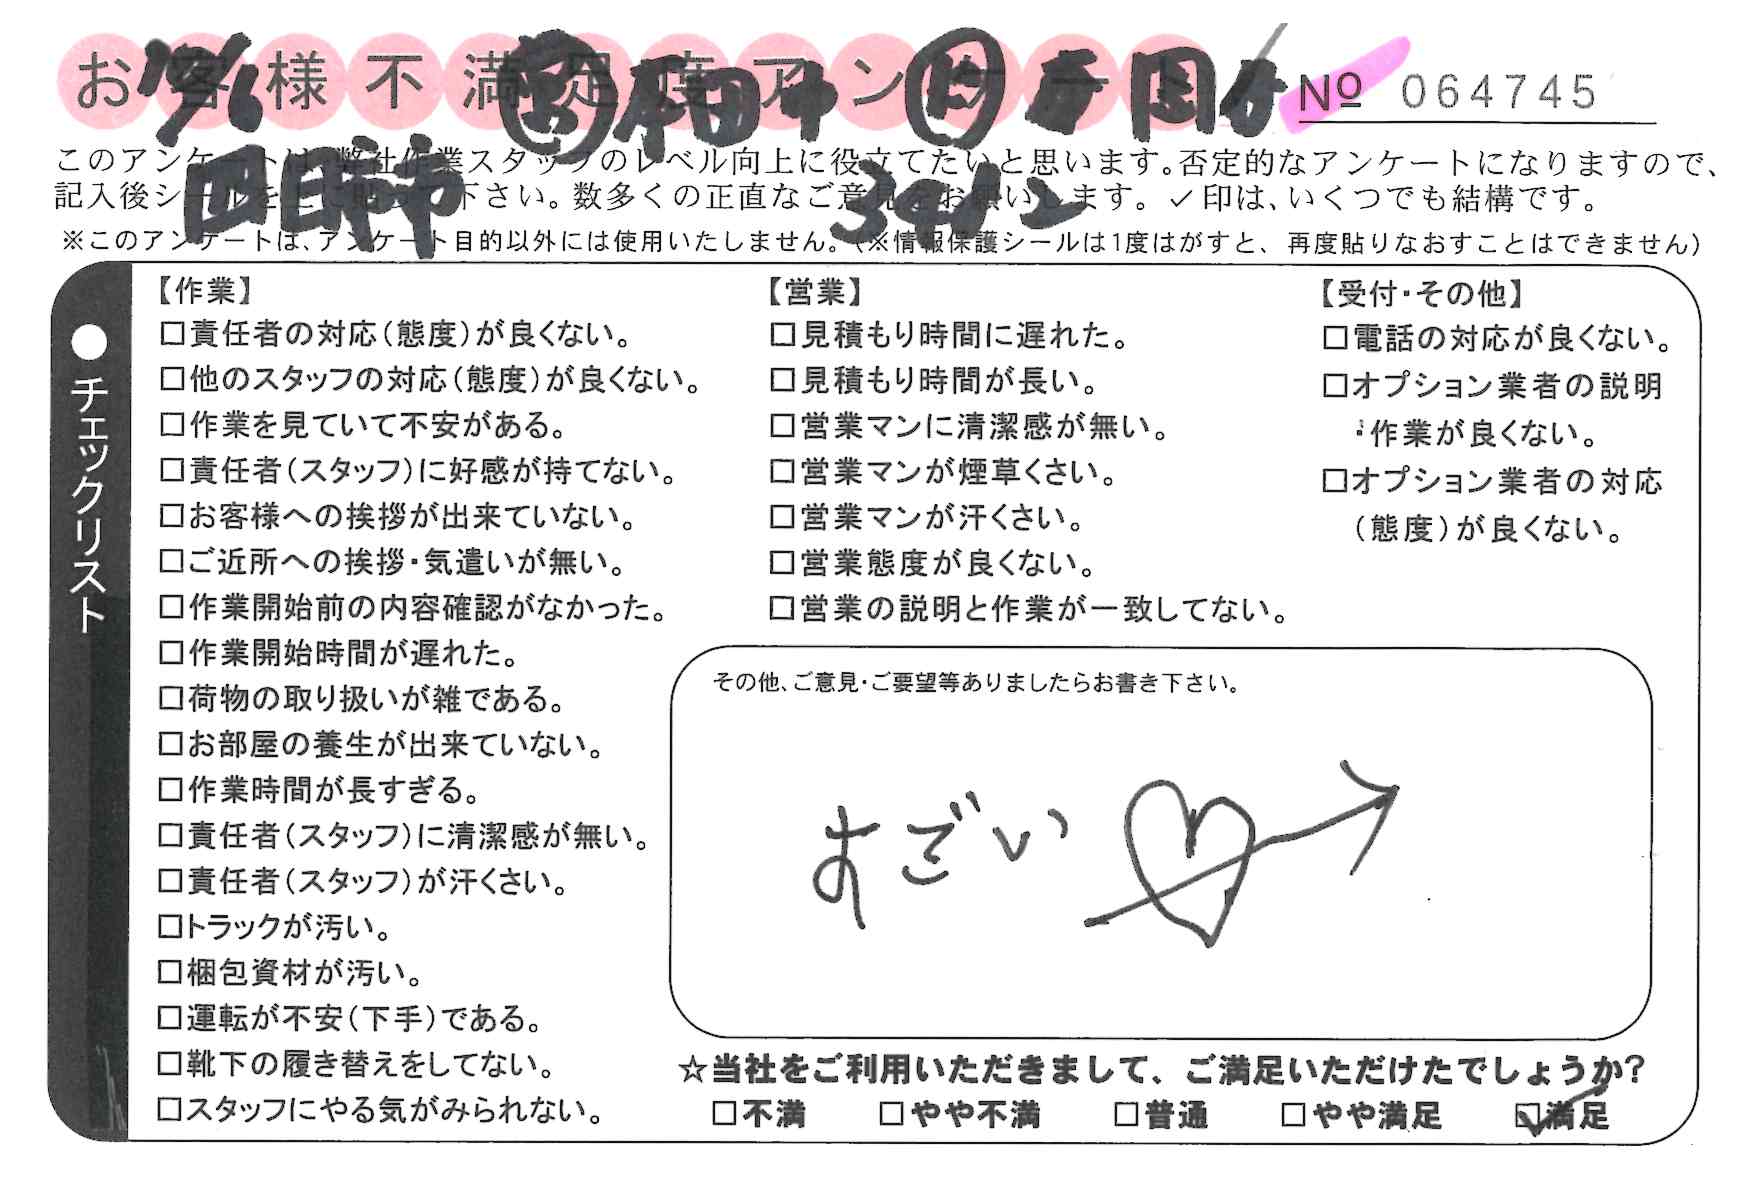 お客様不満足度アンケート
№ 064745
四日市
このアンケートは、弊社作業スタッフのレベル向上に役立てたいと思います。否定的なアンケートになりますので、
記入後シールを上に貼って下さい。数多くの正直なご意見をお願いします。✓印は、いくつでも結構です。
※このアンケートは、アンケート目的以外には使用いたしません。(※情報保護シールは1度はがすと、再度貼りなおすことはできません)
●チェックリスト
【作業】
□責任者の対応(態度)が良くない。
□他のスタッフの対応(態度)が良くない。
□作業を見ていて不安がある。
□責任者(スタッフ)に好感が持てない。
□お客様への挨拶が出来ていない。
□ご近所への挨拶・気遣いが無い。
□作業開始前の内容確認がなかった。
□作業開始時間が遅れた。
□荷物の取り扱いが雑である。
□お部屋の養生が出来ていない。
□作業時間が長すぎる。
□責任者(スタッフ)に清潔感が無い。
□責任者(スタッフ)が汗くさい。
□トラックが汚い。
□梱包資材が汚い。
□運転が不安(下手)である。
□靴下の履き替えをしてない。
□スタッフにやる気がみられない。
【営業】
□見積もり時間に遅れた。
□見積もり時間が長い。
□営業マンに清潔感が無い。
□営業マンが煙草くさい。
□営業マンが汗くさい。
□営業態度が良くない。
□営業の説明と作業が一致してない。
【受付・その他】
□電話の対応が良くない。
□オプション業者の説明
・作業が良くない。
□オプション業者の対応
(態度)が良くない。
その他、ご意見・ご要望等ありましたらお書き下さい。
すごい
☆当社をご利用いただきまして、ご満足いただけたでしょうか?
□不満 □やや不満 □普通 □やや満足 ☑満足